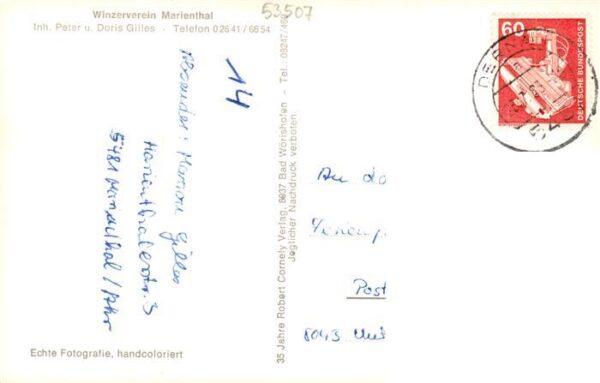 Winzerverein Marienthal
Inh. Peter u. Doris Gilles - Telefon 02641/6654
53507
14
Absender: Marion Gilles
Marienthalerstr. 3
5481 Marienthal/Ahr
Echte Fotografie, handcoloriert
35 Jahre Robert Cornely Verlag, 8937 Bad Wörishofen - Tel.: 08247/458
Jeglicher Nachdruck verboten
60
DEUTSCHE BUNDESPOST
DERNAU
An da
Post
8043